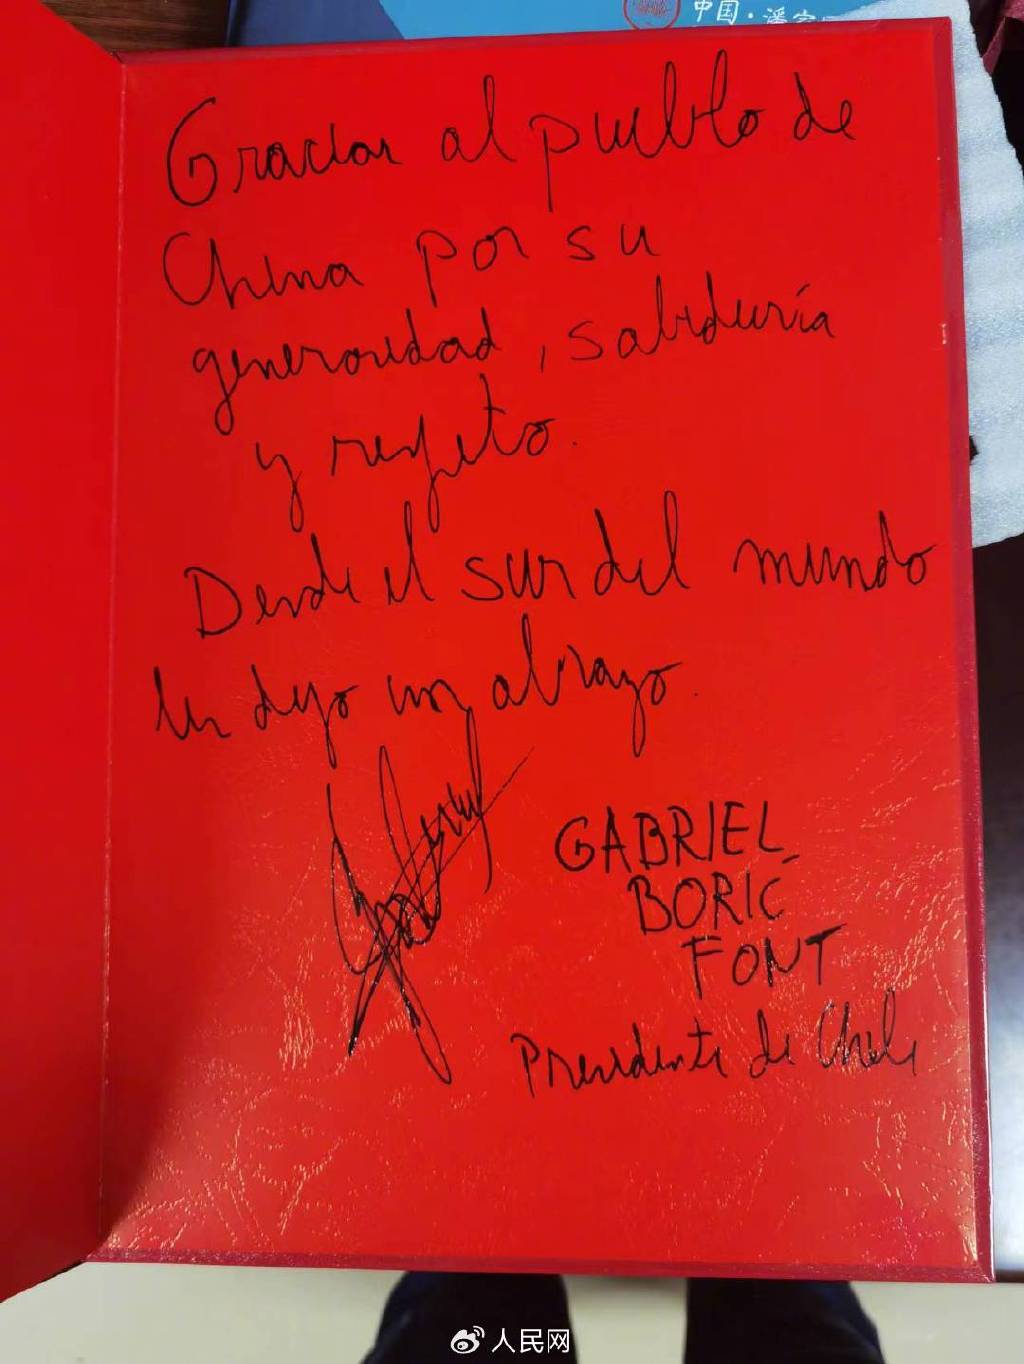 中国·潘家
Gracias al pueblo de
China por su
generosidad, sabiduría
y respeto.
Desde el sur del mundo
les dejo un abrazo.
GABRIEL
BORIC
FONT
Presidente de Chile
人民网